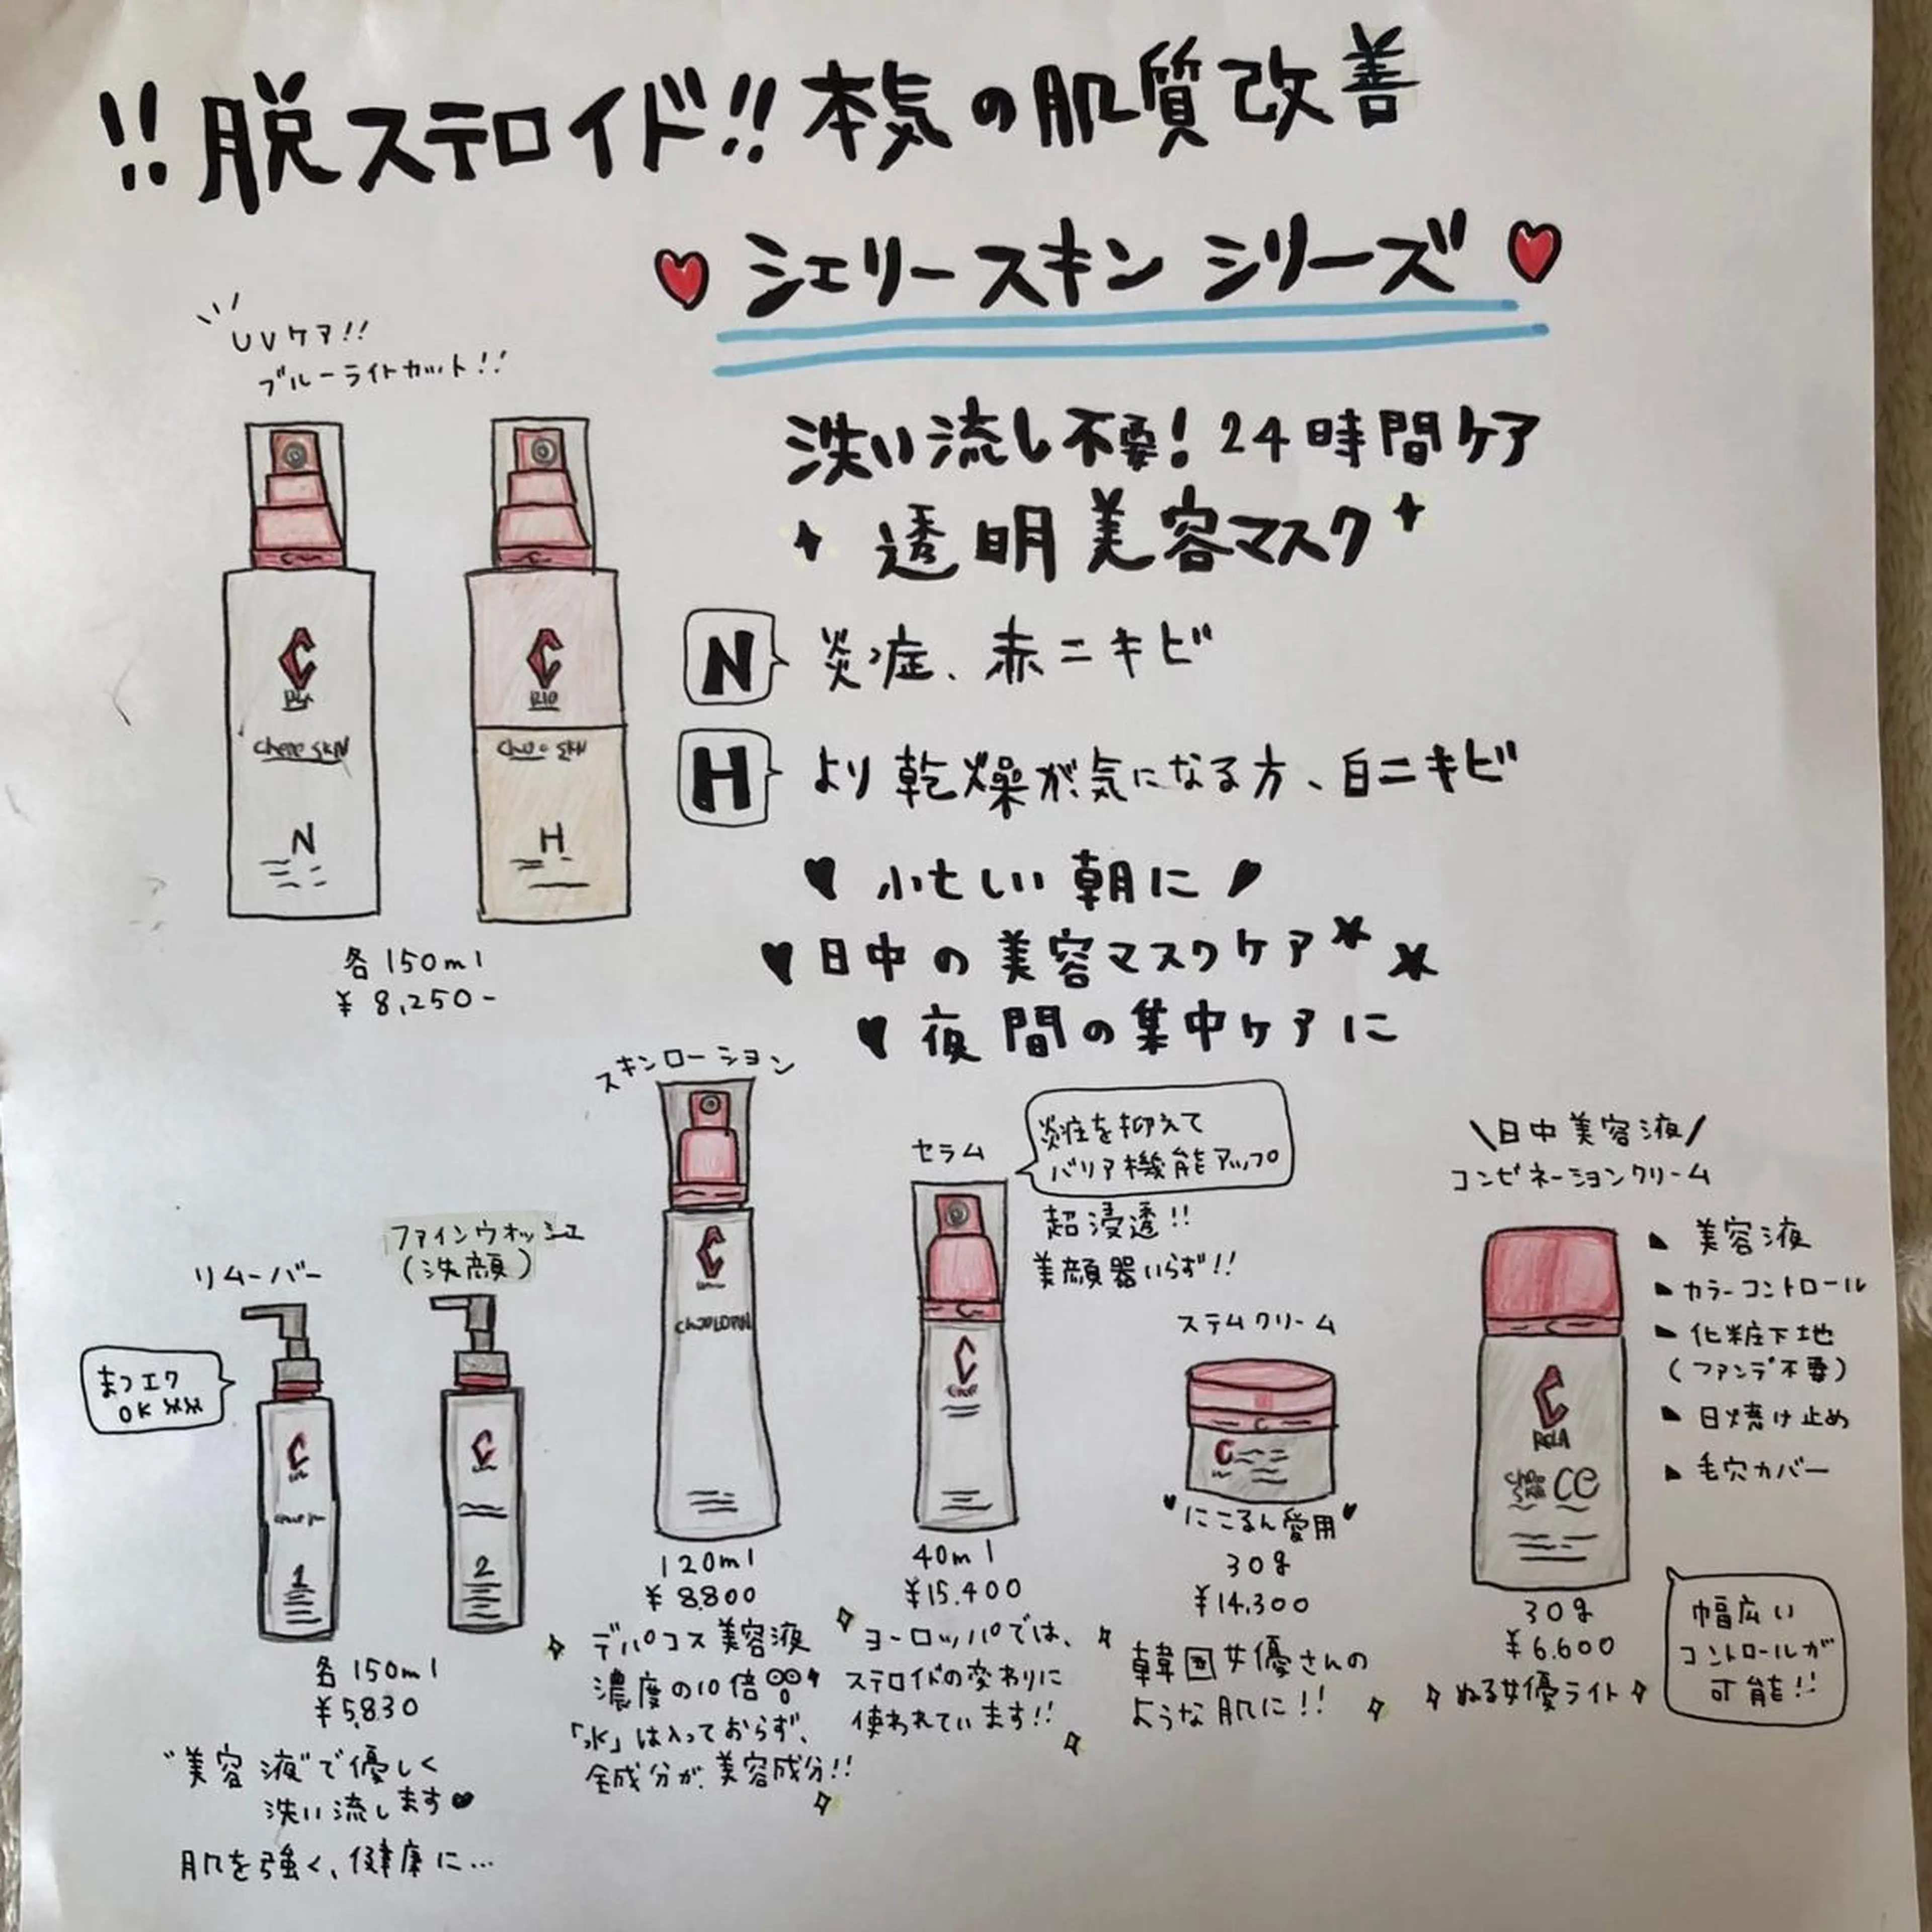 !!脱ステロイド!!本気の肌質改善
シェリースキンシリーズ
UVケア!!
ブルーライトカット!!
洗い流し不要!24時間ケア
透明美容マスク
N 炎症、赤ニキビ
H より乾燥が気になる方、白ニキビ
C
C
RIO
N
H
各150ml
¥8,250-
忙しい朝に
日中の美容マスクケア
夜間の集中ケアに
リムーバー
まつエク
OK
C
1
ファインウォッシュ
(洗顔)
C
2
各150ml
¥5,830
"美容液"で優しく
洗い流します
肌を強く、健康に…
スキンローション
C
120ml
¥8,800
デパコス美容液
濃度の10倍
「水」は入っておらず、
全成分が、美容成分!!
セラム
炎症を抑えて
バリア機能アップ
超浸透!!
美顔器いらず!!
C
40ml
¥15,400
ヨーロッパでは、
ステロイドの変わりに
使われています!!
ステムクリーム
C
にこるん愛用
30g
¥14,300
韓国女優さんの
ような肌に!!
\日中美容液/
コンビネーションクリーム
C
CC
美容液
カラーコントロール
化粧下地
(ファンデ不要)
日焼け止め
毛穴カバー
30g
¥6,600
ぬる女優ライト
幅広い
コントロールが
可能!!